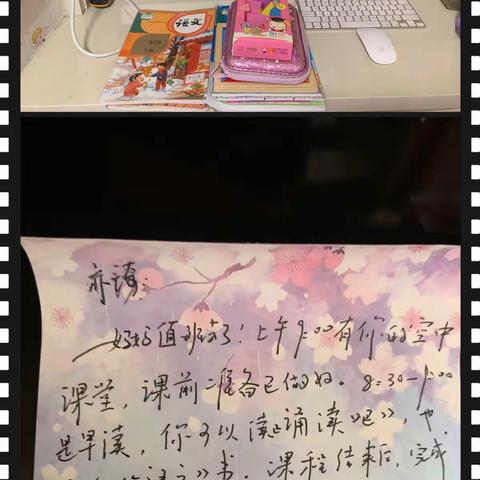 语文
亦琦:
妈妈值班去了!上午9:00有你的空中
课堂,课前准备已做好。8:30-9:00
是早读,你可以读《诵读吧》,也
》书,课程结束后,完成